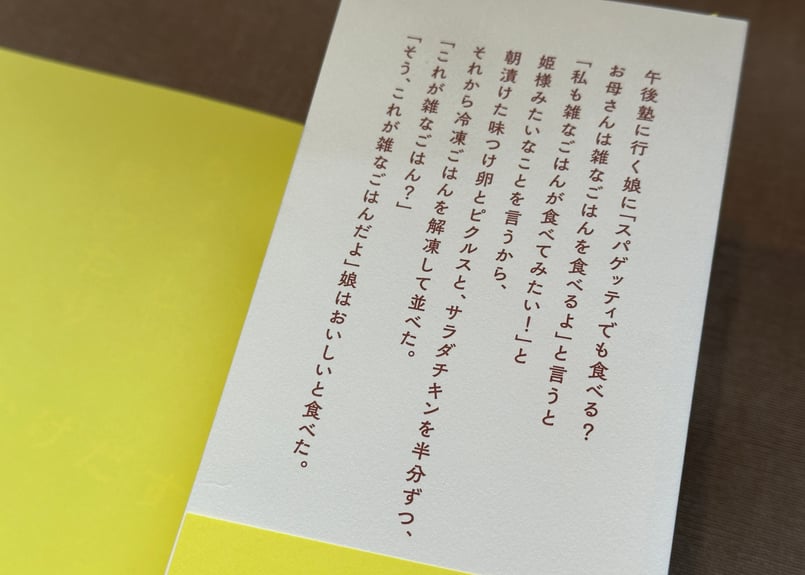 午後塾に行く娘に「スパゲッティでも食べる？
お母さんは雑なごはんを食べるよ」と言うと
「私も雑なごはんが食べてみたい！」と
姫様みたいなことを言うから、
朝漬けた味つけ卵とピクルスと、サラダチキンを半分ずつ、
それから冷凍ごはんを解凍して並べた。
「これが雑なごはん？」
「そう、これが雑なごはんだよ」娘はおいしいと食べた。